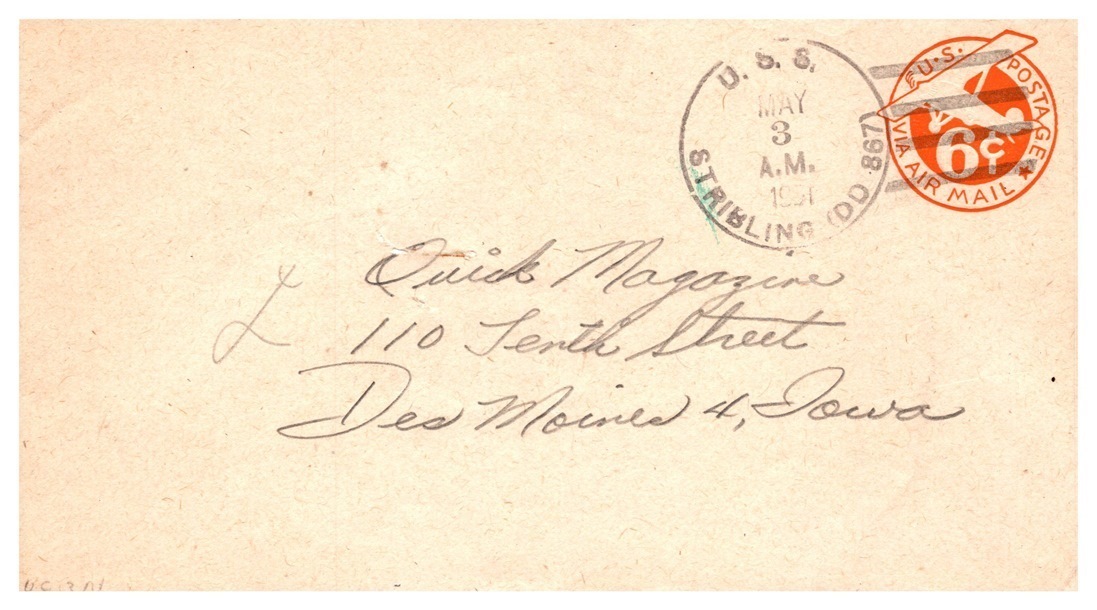 U.S.S.
MAY
3
A.M.
1951
STRIBLING (DD 867)
U.S. POSTAGE
6¢
VIA AIR MAIL
Quick Magazine
110 Tenth Street
Des Moines 4, Iowa